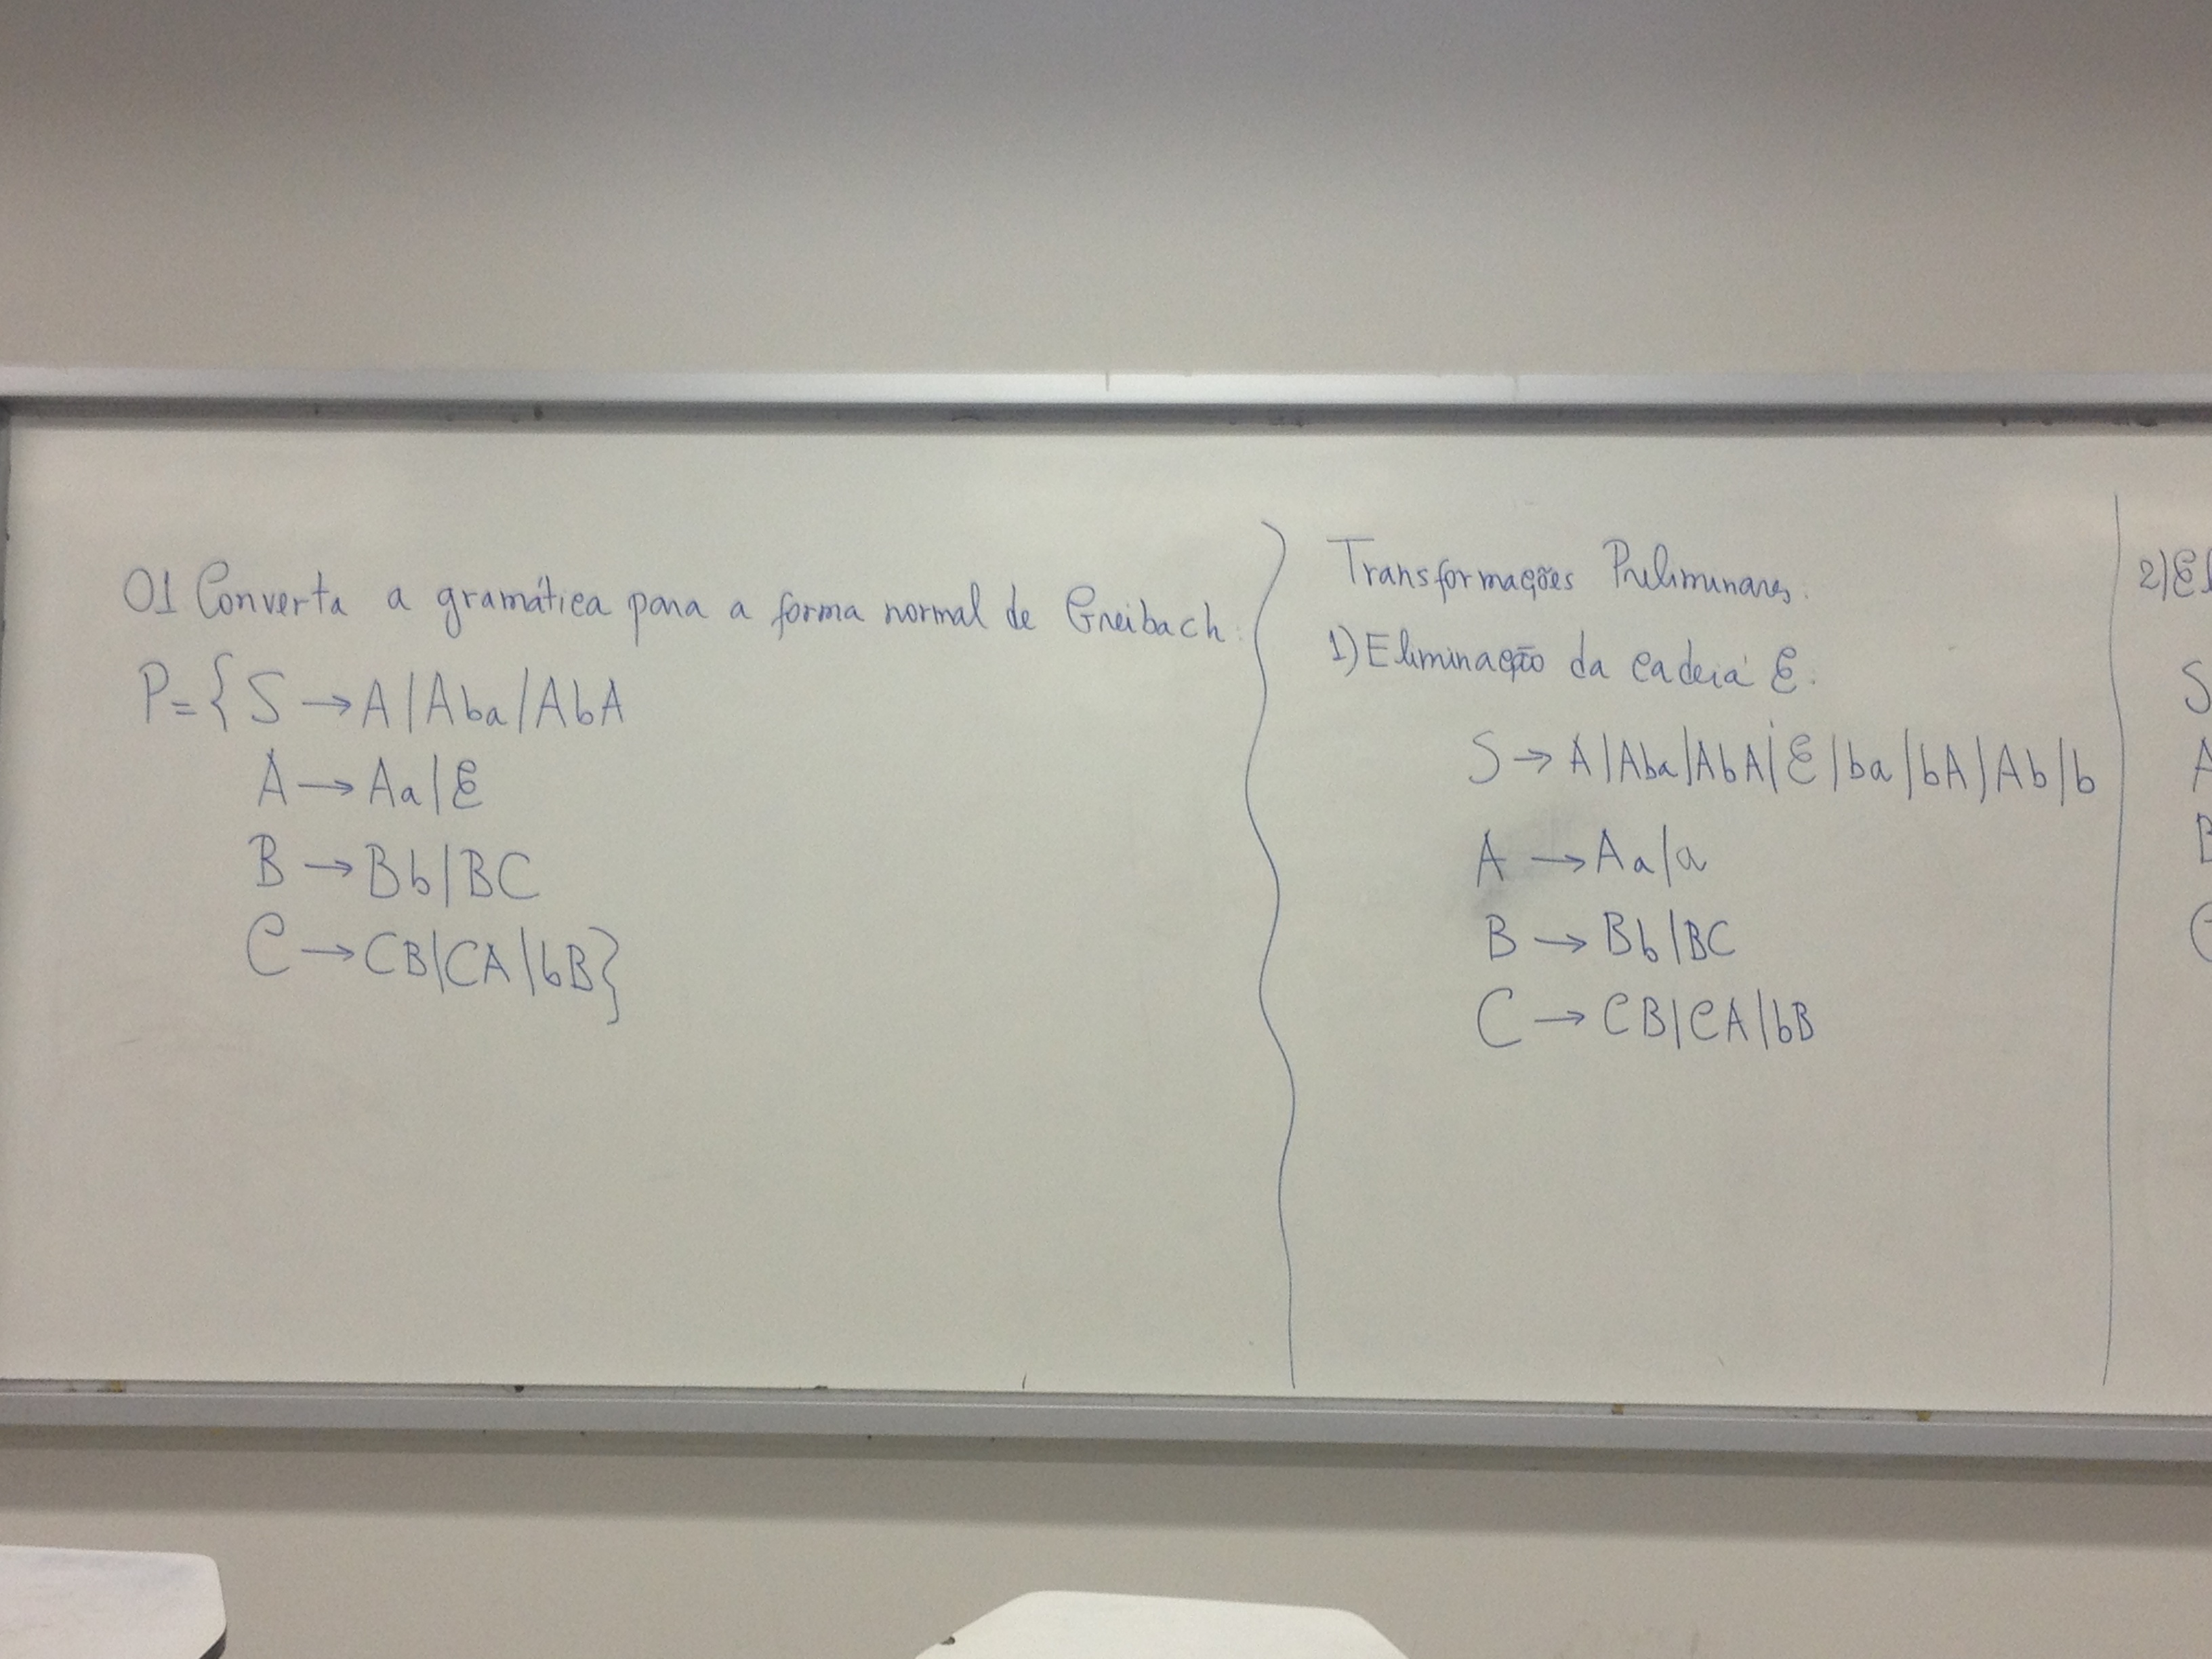 01 Converta a gramática para a forma normal de Greibach:
P={S → A|Aba|AbA
A → Aa|ε
B → Bb|BC
C → CB|CA|bB}
Transformações Preliminares.
1) Eliminação da cadeia ε.
S → A|Aba|AbA|ε|ba|bA|Ab|b
A → Aa|a
B → Bb|BC
C → CB|CA|bB
2)El
S
A
B
C